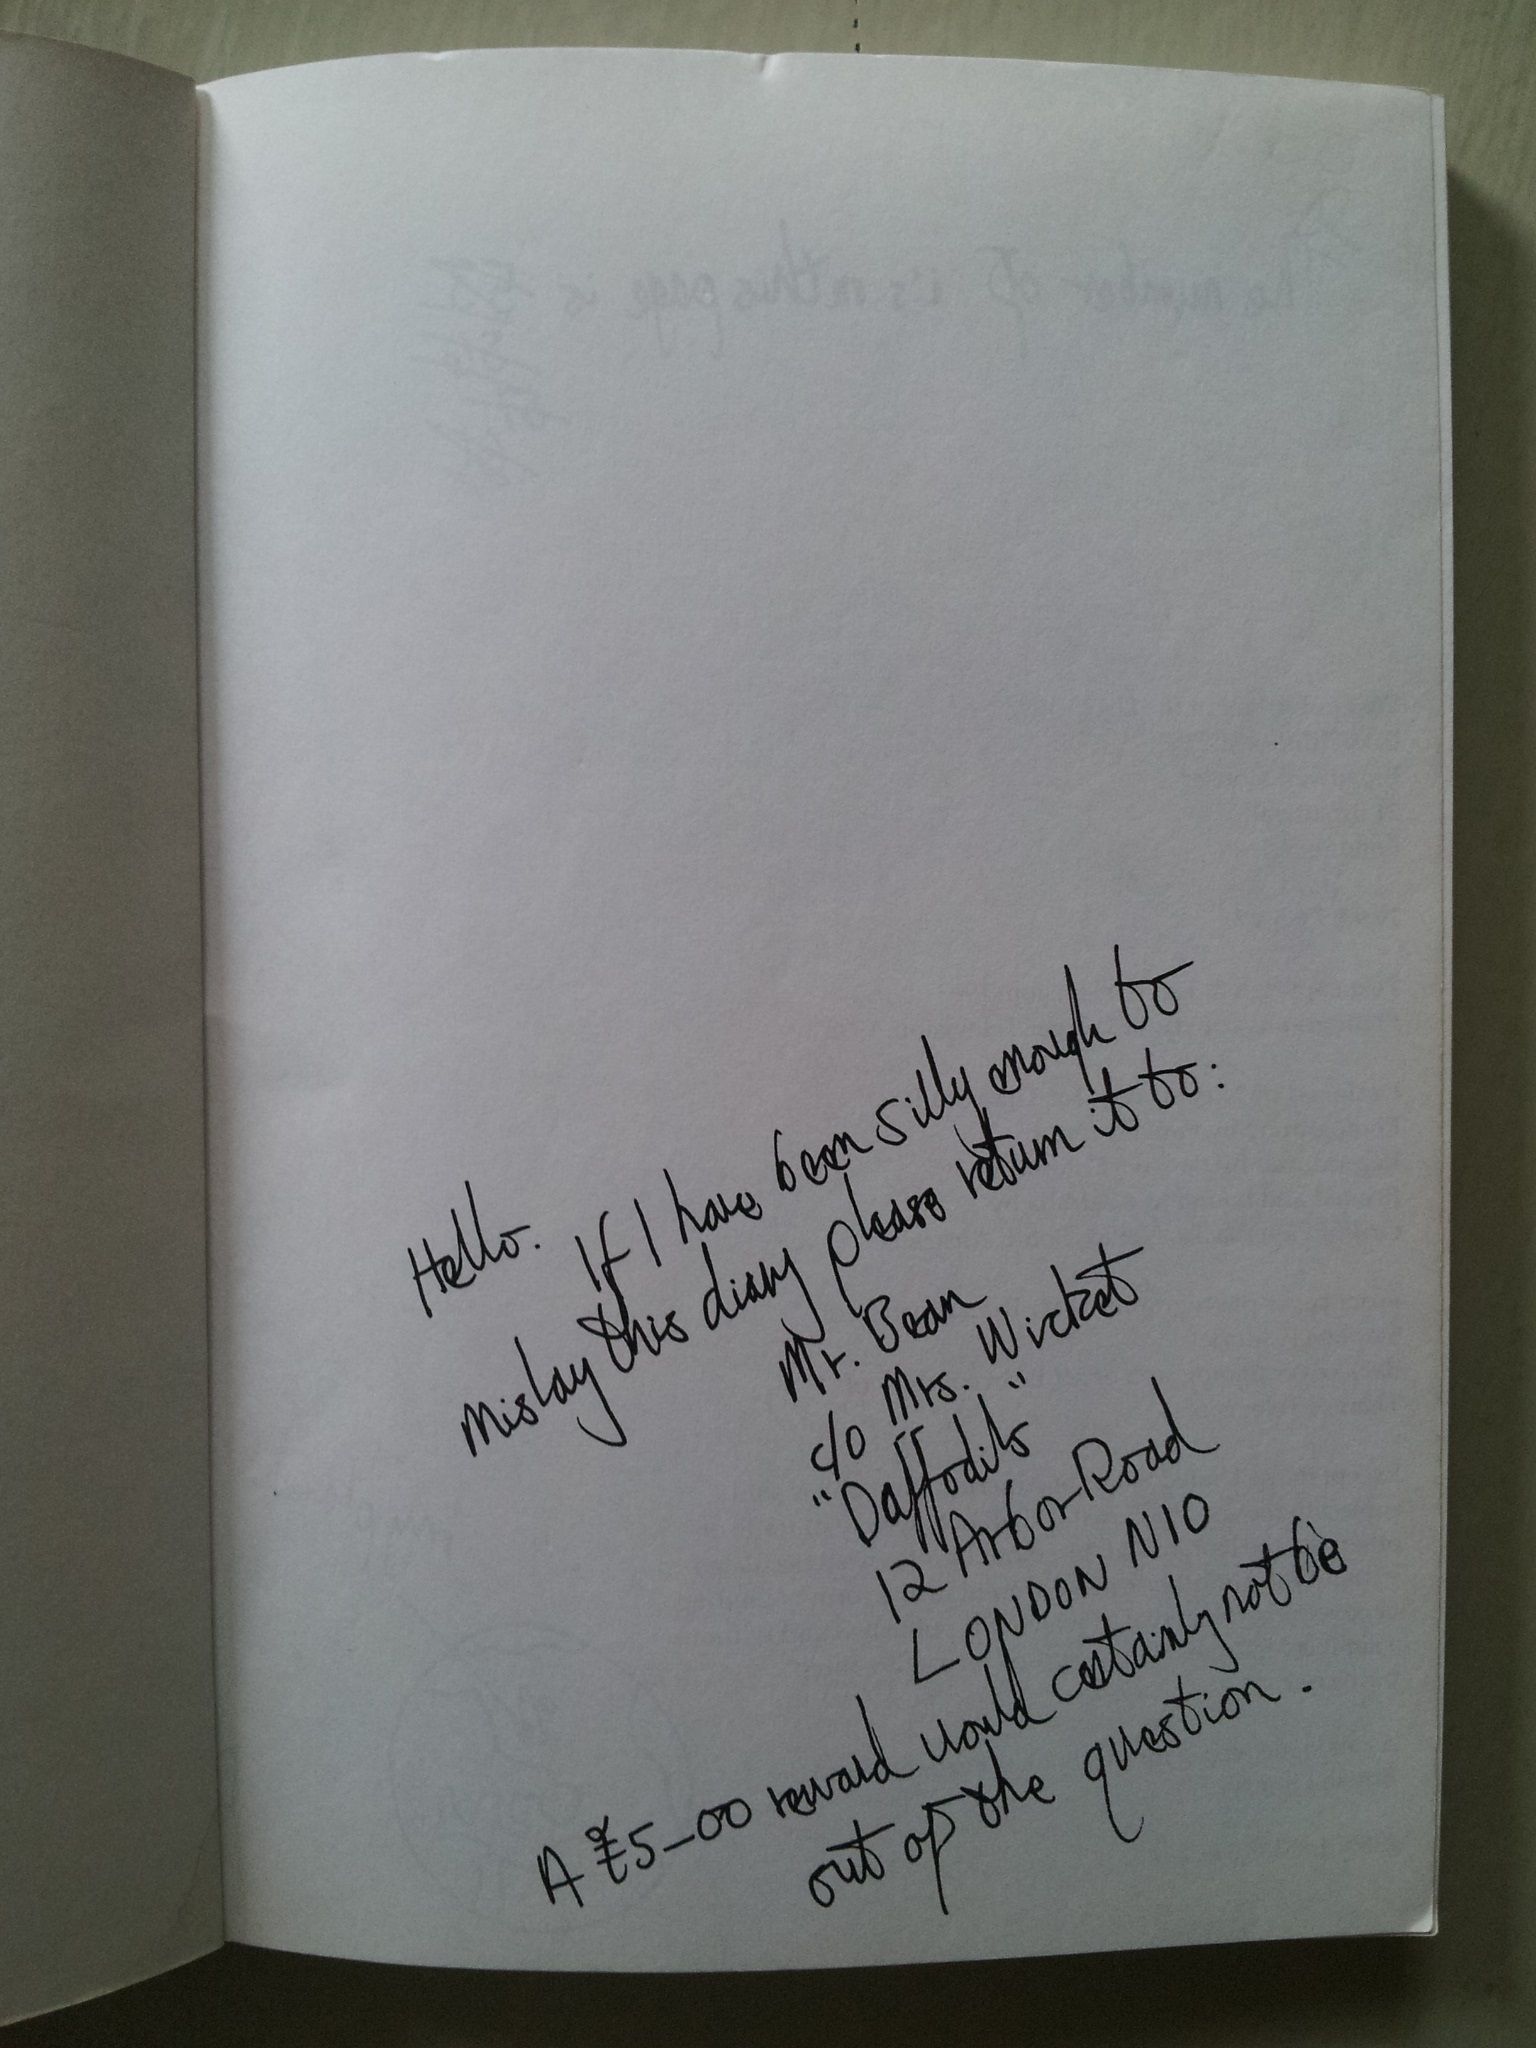 Hello. If I have been silly enough to
mislay this diary please return it to:
Mr. Bean
c/o Mrs. Wicket
"Daffodils"
12 Arbor Road
LONDON N10
A £5-00 reward would certainly not be
out of the question.
The number of i's on this page is